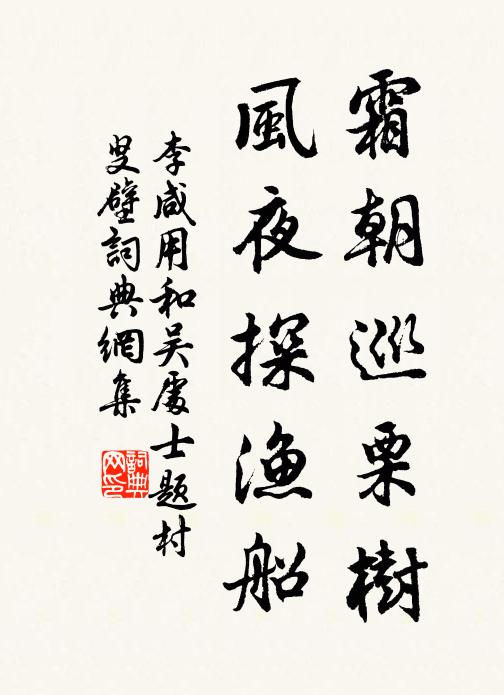 霜朝巡栗樹
風夜探漁船
李咸用和吳處士題村
叟壁詞典網集
詞典
网印